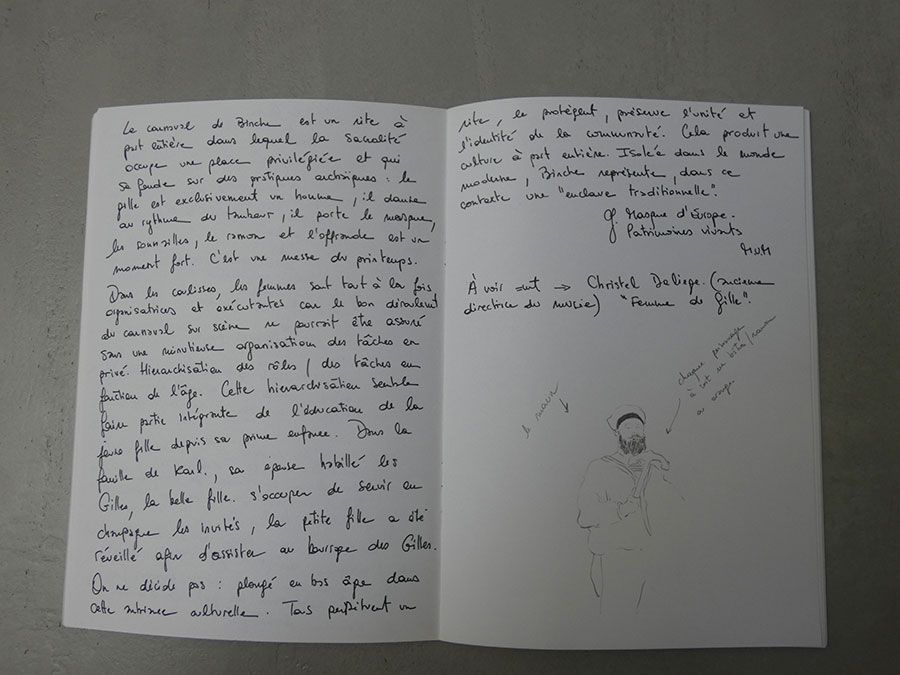 Le carnaval de Binche est un rite à
part entière dans lequel la sacralité
occupe une place privilégiée et qui
se fonde sur des pratiques archaïques : le
gille est exclusivement un homme, il danse
au rythme du tambour, il porte le masque,
les sonnailles, le ramon et l'offrande est un
moment fort. C'est une messe du printemps.
Dans les coulisses, les femmes sont tout à la fois
organisatrices et exécutantes car le bon déroulement
du carnaval sur scène ne pourrait être assuré
sans une minutieuse organisation des tâches en
privé. Hierarchisation des rôles / des tâches en
fonction de l'âge. Cette hierarchisation semble
faire partie intégrante de l'éducation de la
jeune fille depuis sa prime enfance. Dans la
famille de Karl., sa épouse habillé les
Gilles, la belle fille. s'occuper de servir en
champagne les invités, la petite fille a été
réveillé afin d'assister au bourrage des Gilles.
On ne décide pas : plongé en bas âge dans
cette culturelle. Tous un
rite, le protègent, préserve l'unité et
l'identité de la communauté. Cela produit une
culture à part entière. Isolée dans le monde
moderne, Binche représente, dans ce
contexte une "enclave traditionnelle".
Masque d'Europe.
Patrimoines vivants
MUM
À voir → Christel Deliège. (ancienne
directrice du musée) "Femme de Gille".
chaque personnage
à un bâton/ramon
ou orange
le ramon